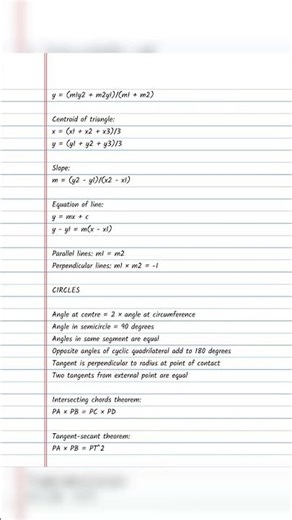 y = (m1y2 + m2y1)/(m1 + m2)
Centroid of triangle:
x = (x1 + x2 + x3)/3
y = (y1 + y2 + y3)/3
Slope:
m = (y2 - y1)/(x2 - x1)
Equation of line:
y = mx + c
y - y1 = m(x - x1)
Parallel lines: m1 = m2
Perpendicular lines: m1 × m2 = -1
CIRCLES
Angle at centre = 2 × angle at circumference
Angle in semicircle = 90 degrees
Angles in same segment are equal
Opposite angles of cyclic quadrilateral add to 180 degrees
Tangent is perpendicular to radius at point of contact
Two tangents from external point are equal
Intersecting chords theorem:
PA × PB = PC × PD
Tangent-secant theorem:
PA × PB = PT^2